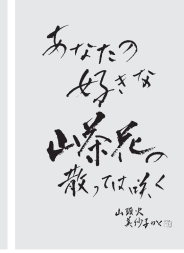 あなたの
好きな
山茶花の
散っては咲く
山頭火
美沙子かく